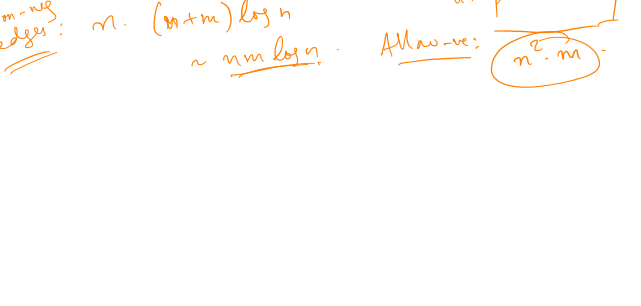 edges: n. (n+m) log n
~ nm log n. Allow -ve: n². m.